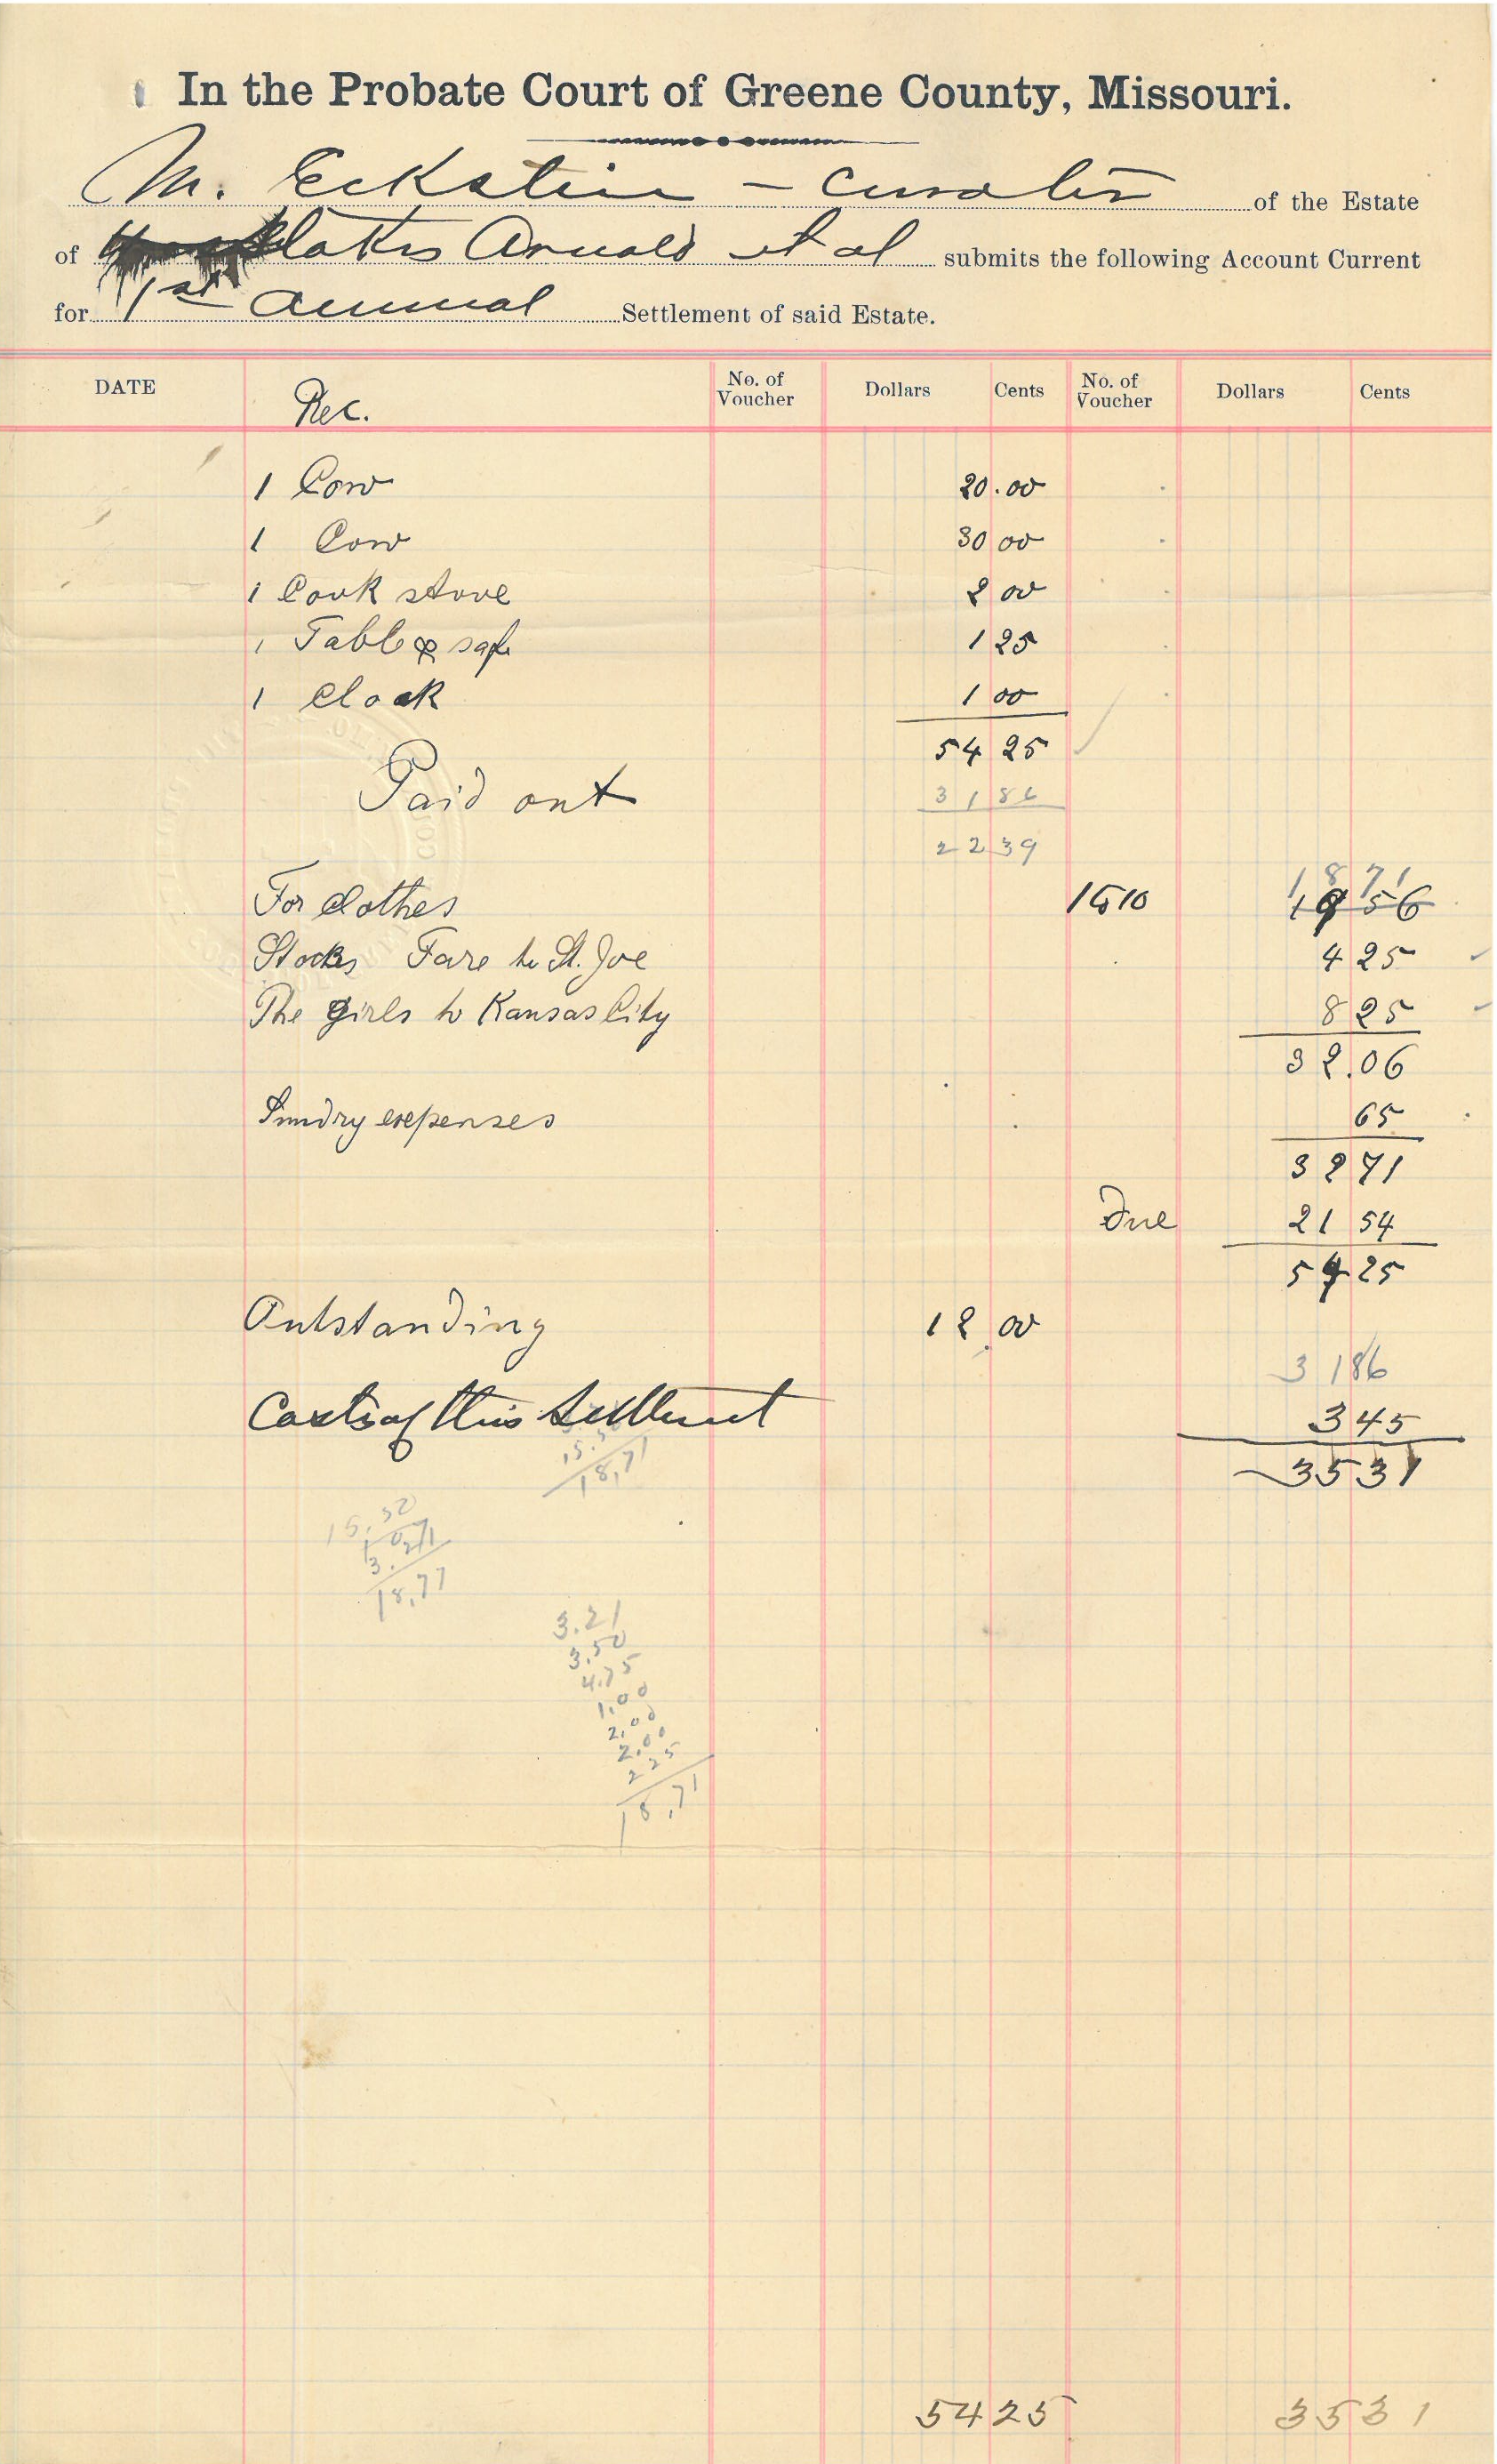 In the Probate Court of Greene County, Missouri.
M. Eckstein - Curator of the Estate
of Arnald et al submits the following Account Current
for 1st annual Settlement of said Estate.
DATE Rec. No. of Voucher Dollars Cents No. of Voucher Dollars Cents
1 Cow 20.00
1 Cow 30 00
1 Cook stove 2 00
1 Table & safe 1 25
1 Clock 1 00
54 25
Paid out 31 86
22 39
18 71
For clothes 19 56
Stocks Fare to St. Joe 4 25
The girls to Kansas City 8 25
32.06
Sundry expenses 65
32 71
Due 21 54
54 25
Outstanding 12.00
31 86
Costs of this Settlement 3 45
35 31
18,71
15.50
18,77
3.21
3.50
4.75
1.00
2.00
2.00
2 25
18,71
54 25 35 31